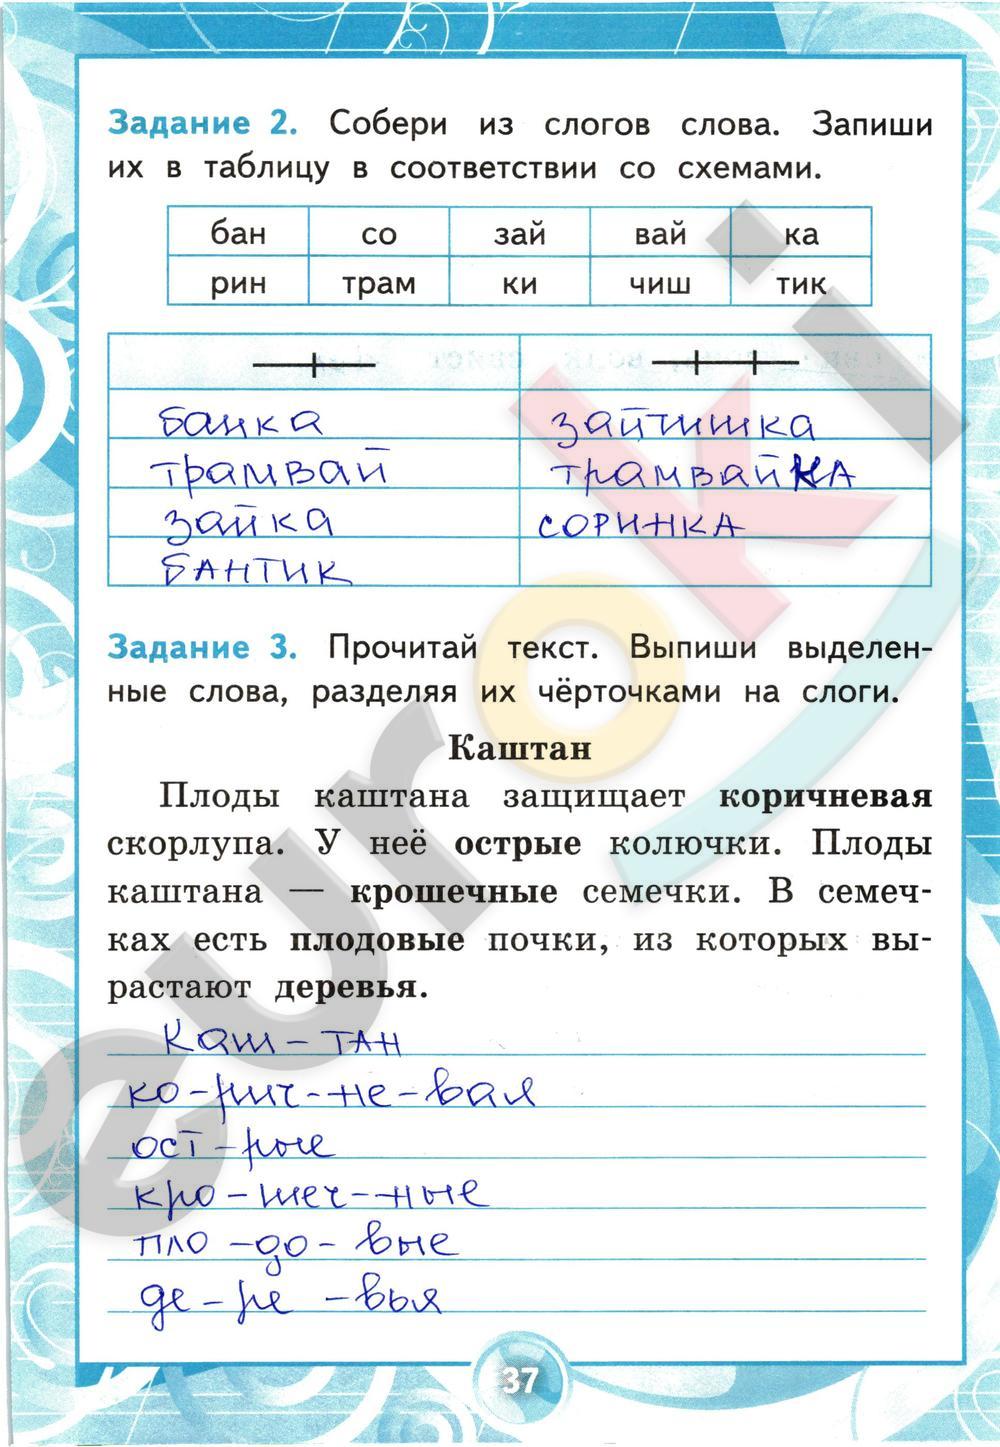 Задание 2. Собери из слогов слова. Запиши
их в таблицу в соответствии со схемами.
бан со зай вай ка
рин трам ки чиш тик
банка зайчишка
трамвай трамвайКА
зайка СОРИНКА
БАНТИК
Задание 3. Прочитай текст. Выпиши выделен-
ные слова, разделяя их чёрточками на слоги.
Каштан
Плоды каштана защищает коричневая
скорлупа. У неё острые колючки. Плоды
каштана — крошечные семечки. В семеч-
ках есть плодовые почки, из которых вы-
растают деревья.
Каш - ТАН
ко - рич - не - вая
ост - рые
кро - шеч - ные
пло - до - вые
де - ре - вья
37
euroki